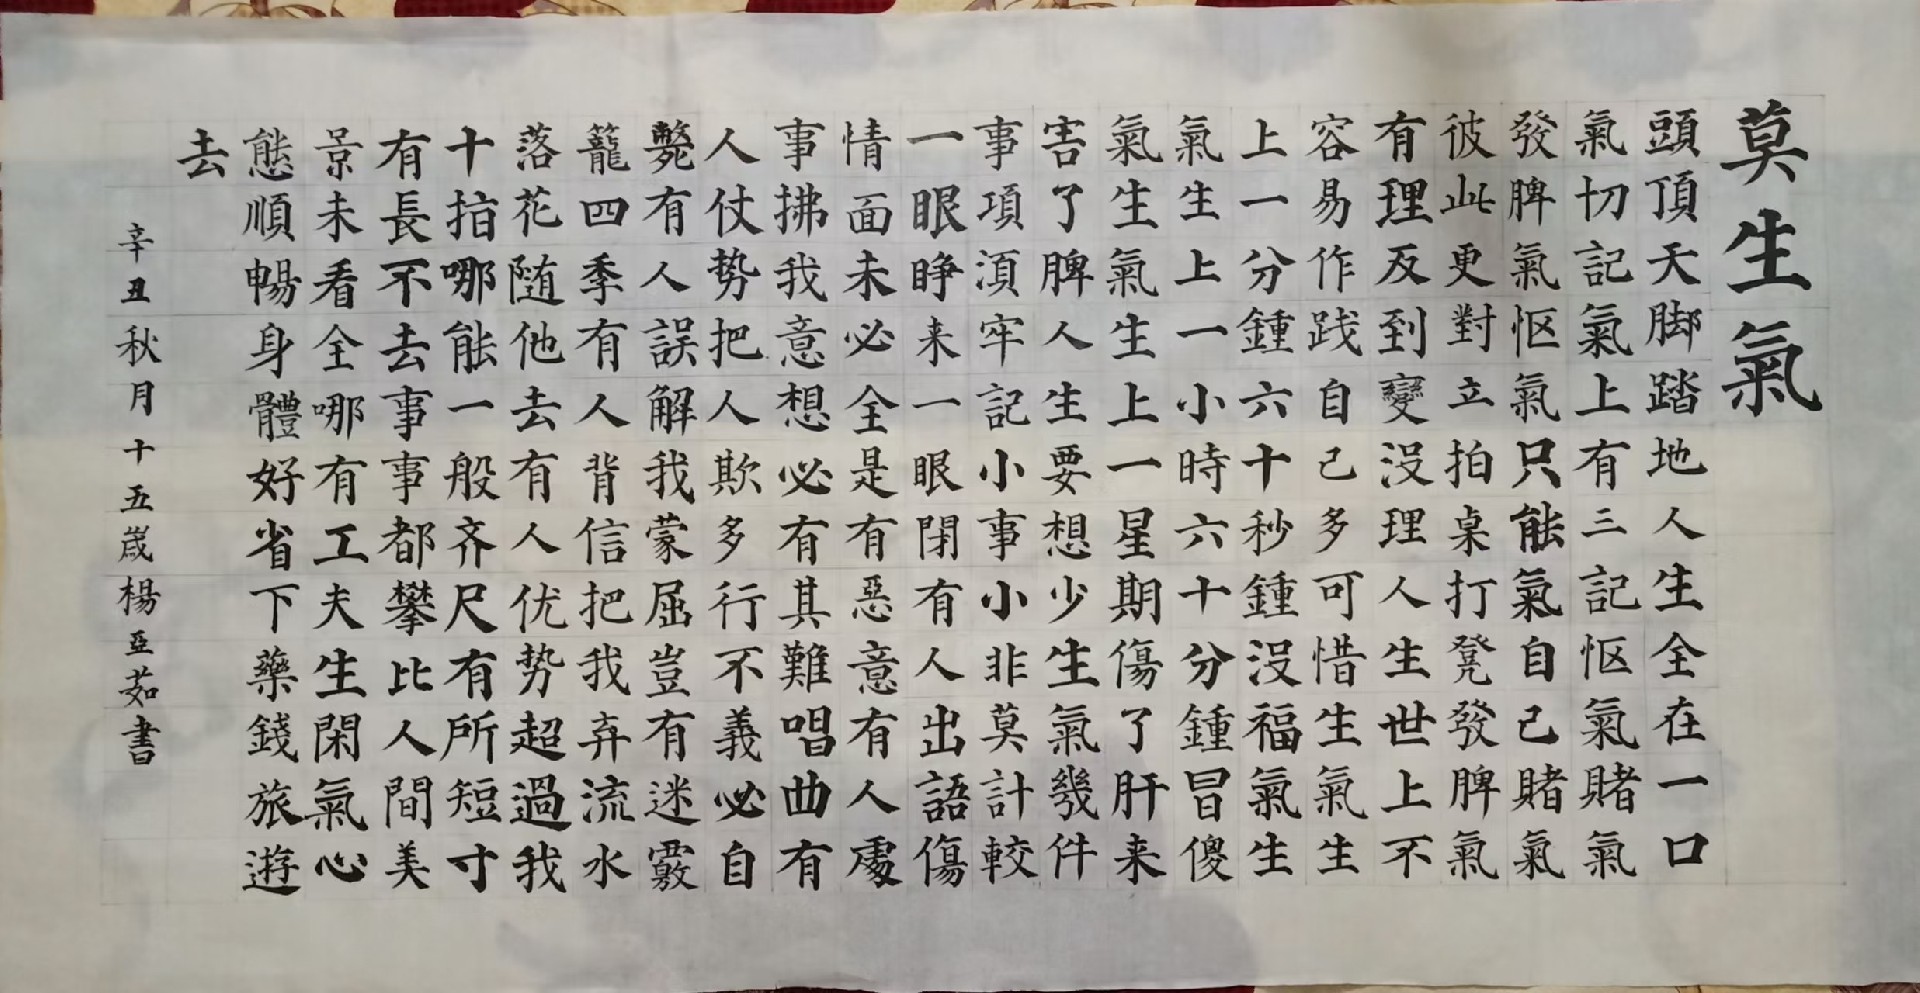 莫生氣
頭頂天脚踏地人生全在一口
氣切記氣上有三記怄氣賭氣
發脾氣怄氣只能氣自己賭氣
彼此更對立拍桌打凳發脾氣
有理反到變没理人生世上不
容易作践自己多可惜生氣生
上一分鍾六十秒鍾没福氣生
氣生上一小時六十分鍾冒傻
氣生氣生上一星期傷了肝来
害了脾人生要想少生氣幾件
事項須牢記小事小非莫計較
一眼睁来一眼閉有人出語傷
情面未必全是有惡意有人處
事拂我意想必有其難唱曲有
人仗势把人欺多行不義必自
斃有人誤解我蒙屈豈有迷霧
籠四季有人背信把我弃流水
落花随他去有人优势超過我
十指哪能一般齐尺有所短寸
有長不去事事都攀比人間美
景未看全哪有工夫生閑氣心
態順暢身體好省下藥錢旅遊
去
辛丑秋月十五嵗楊亞茹書